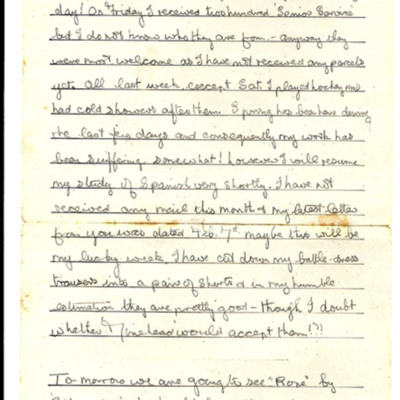 day! On Friday I received two hundred "Senior Service"
but I do not know who they are from - anyway they
were most welcome as I have not received any parcels
yet. All last week, except Sat. I played hockey and
had cold showers after them. Spring has been here during
the last few days and consequently my work has
been suffering somewhat! however I will resume
my study of Spanish very shortly. I have not
received any mail this month & my latest letter
from you was dated Feb. 7th maybe this will be
my lucky week. I have cut down my battle-dress
trousers into a pair of shorts & in my humble
estimation they are pretty good - though I doubt
whether would accept them!?!
To-morrow we are going to see "Rose" by